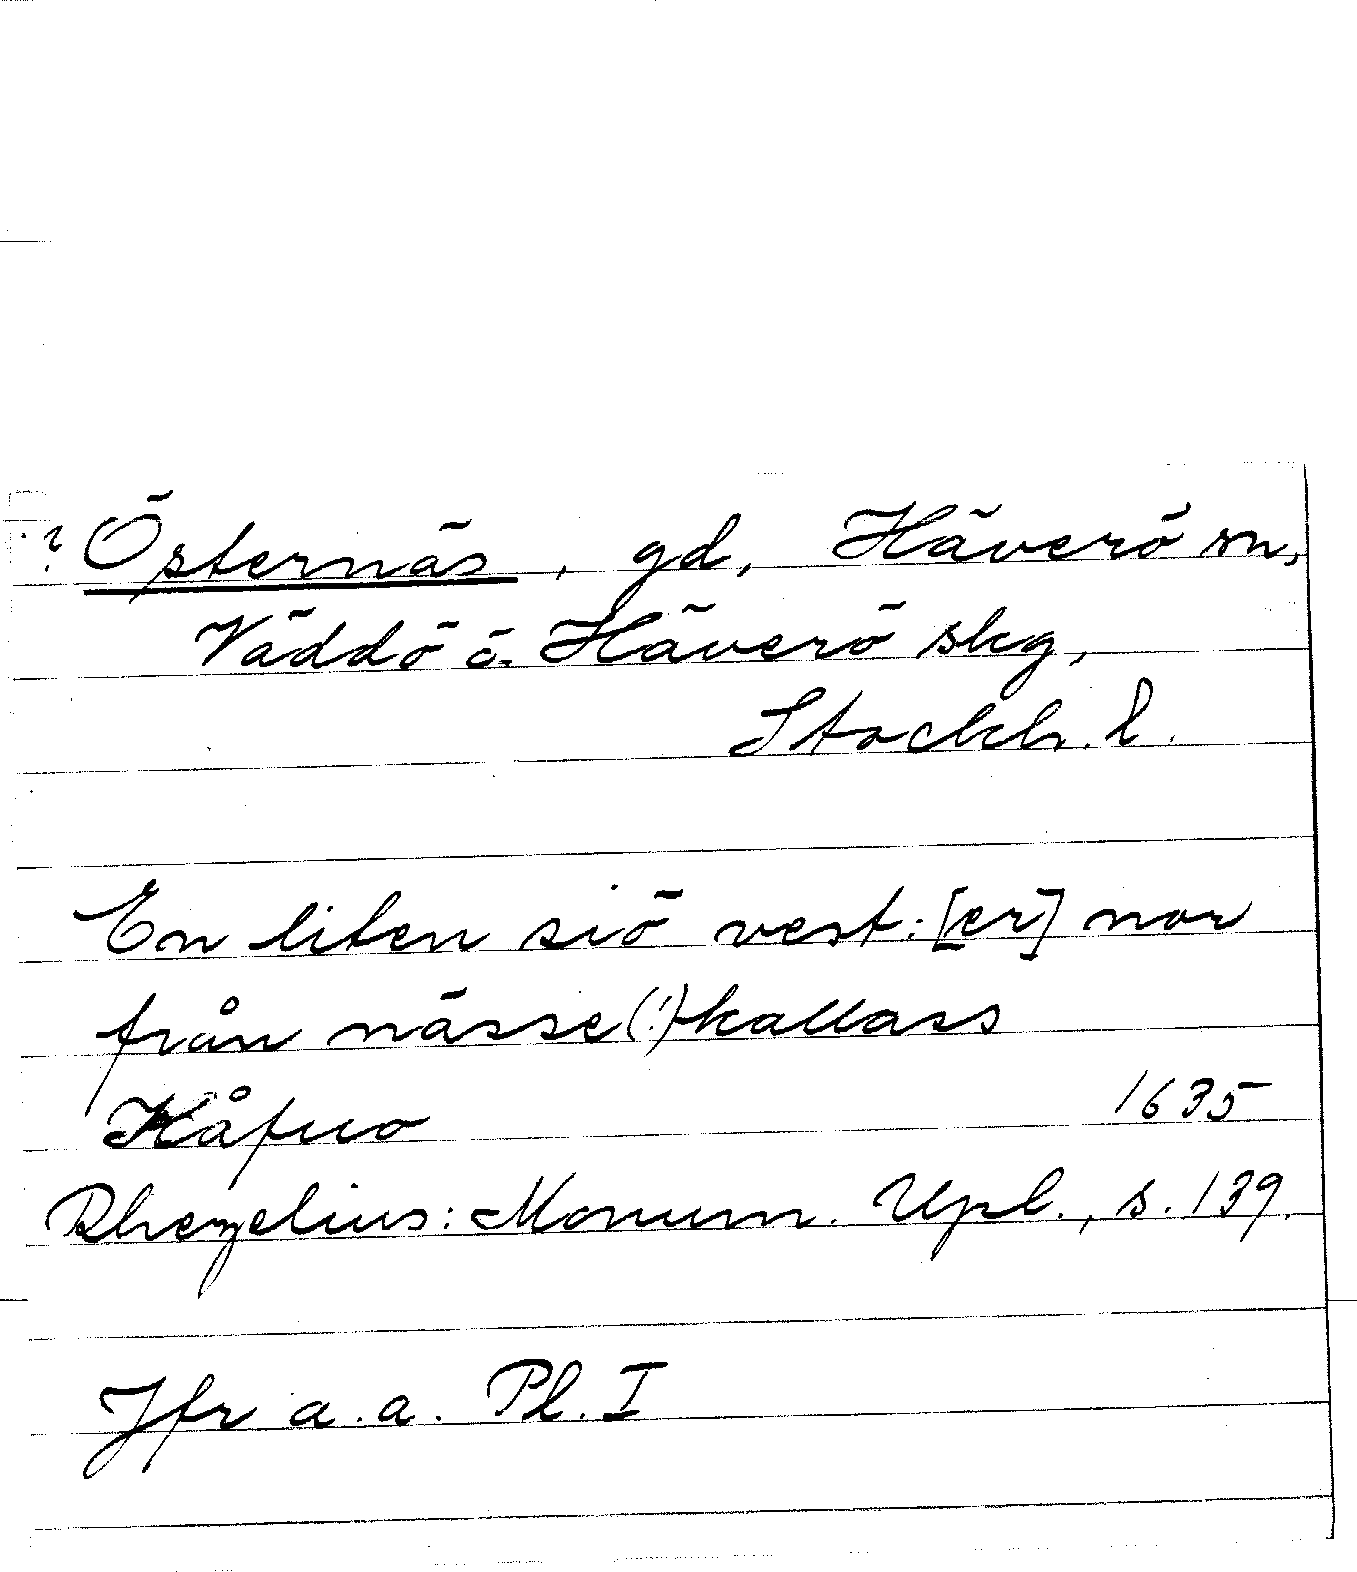 ? Östernäs, gd, Häverö sn,
Väddö o. Häverö skg,
Stockh. l.
En liten siö vest:[er] nor
från nässe(!) kallass
Kåfuo 1635
Rhezelius: Monum. Upl., s. 139.
Jfr a.a. Pl. I